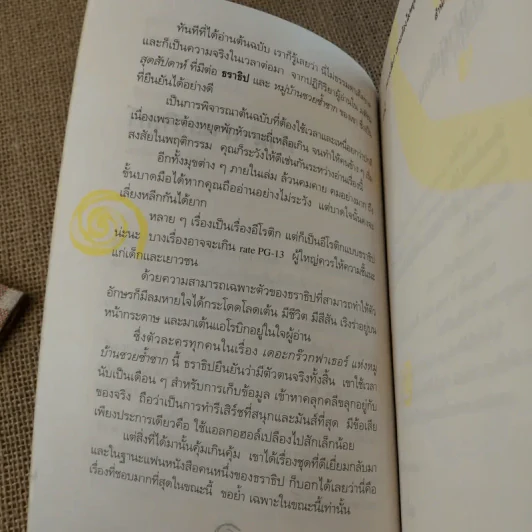 ทันทีที่ได้อ่านต้นฉบับ เราก็รู้เลยว่า
และก็เป็นความจริงในเวลาต่อมา จากปฏิกิริยาผู้อ่านใน
สุดสัปดาห์ ที่มีต่อ ธราธิป และ หมู่บ้านซวยซ้ำซาก ของเขา
ที่ยืนยันได้อย่างดี
เป็นการพิจารณาต้นฉบับที่ต้องใช้เวลาและเหนื่อยกว่าปกติ
เนื่องเพราะต้องหยุดพักหัวเราะถี่เหลือเกิน จนทำให้คนข้าง ๆ
สงสัยในพฤติกรรม คุณก็ระวังให้ดีเช่นกันระหว่างอ่านเรื่องนี้
อีกทั้งมุขต่าง ๆ ภายในเล่ม ล้วนคมคาย คมอย่างมาก ถึง
ขั้นบาดมือได้หากคุณถืออ่านอย่างไม่ระวัง แต่บาดใจนั้นคงจะ
เลี่ยงหลีกกันได้ยาก
หลาย ๆ เรื่องเป็นเรื่องอีโรติก แต่ก็เป็นอีโรติกแบบธราธิป
น่ะนะ บางเรื่องอาจจะเกิน rate PG-13 ผู้ใหญ่ควรให้ความชี้แนะ
แก่เด็กและเยาวชน
ด้วยความสามารถเฉพาะตัวของธราธิปที่สามารถทำให้ตัว
อักษรก็มีลมหายใจได้กระโดดโลดเต้น มีชีวิต มีสีสัน เริงร่าอยู่บน
หน้ากระดาษ และมาเต้นแอโรบิกอยู่ในใจผู้อ่าน
ซึ่งตัวละครทุกคนในเรื่อง เดอะกร๊วกฟาเธอร์ แห่งหมู่
บ้านซวยซ้ำซาก นี้ ธราธิปยืนยันว่ามีตัวตนจริงทั้งสิ้น เขาใช้เวลา
นับเป็นเดือน ๆ สำหรับการเก็บข้อมูล เข้าหาคลุกคลีขลุกอยู่กับ
ของจริง ถือว่าเป็นการทำรีเสิร์ชที่สนุกและมันส์ที่สุด มีข้อเสีย
เพียงประการเดียวคือ ใช้แอลกอฮอล์เปลืองไปสักเล็กน้อย
แต่สิ่งที่ได้มานั้นคุ้มเกินคุ้ม เขาได้เรื่องชุดที่ดีเยี่ยมกลับมา
และในฐานะแฟนหนังสือคนหนึ่งของธราธิป ก็บอกได้เลยว่านี่คือ
เรื่องที่ชอบมากที่สุดในขณะนี้ ขอย้ำ เฉพาะในขณะนี้เท่านั้น